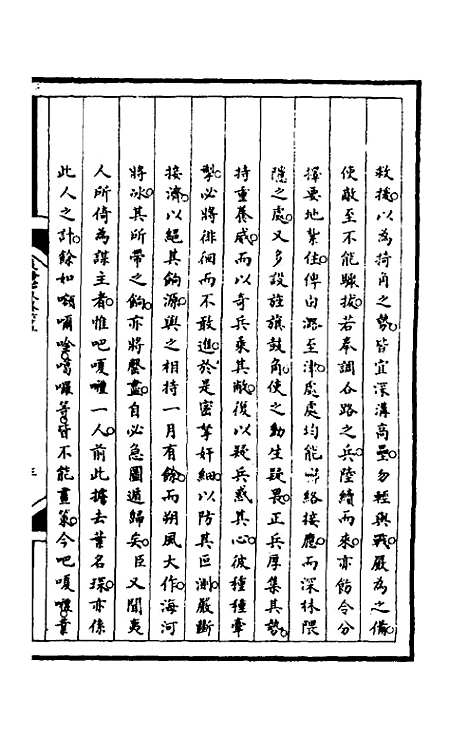 救援以為掎角之勢皆宜深溝高壘勿輕與戰嚴為之備
使敵至不能驟拔若奉調各路之兵陸續而來亦飭令分
擇要地紮住俾由潞至津處處均能聯絡接應而深林隈
隱之處又多設旌旗鼓角使之動生疑畏正兵厚集其勢
持重養威而以奇兵乘其敝復以疑兵惑其心彼種種牽
掣必將徘徊而不敢進於是密拏奸細以防其叵測嚴斷
接濟以絕其餉源與之相持一月有餘而朔風大作海河
將冰其所帶之餉亦將罄盡自必急圖遁歸矣臣又聞夷
人所倚為謀主者惟吧嗄喱一人前此擄去葉名琛亦係
此人之計餘如嘞嚹唫噶囉等皆不能畫策今吧嗄喱業